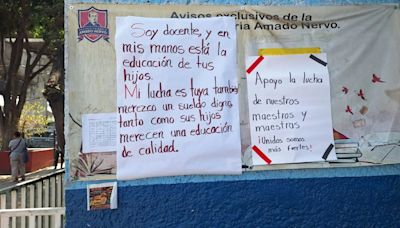 Avisos exclusivos de la
ria Amado Nervo.
Soy docente, y en
mis manos está la
educación de tus
hijos.
Mi lucha es tuya también
merezco un sueldo digno,
tanto como sus hijos
merecen una educación
de calidad.
Apoyo la lucha
de nuestros
maestros y
maestras
¡Unidos somos
más fuertes!